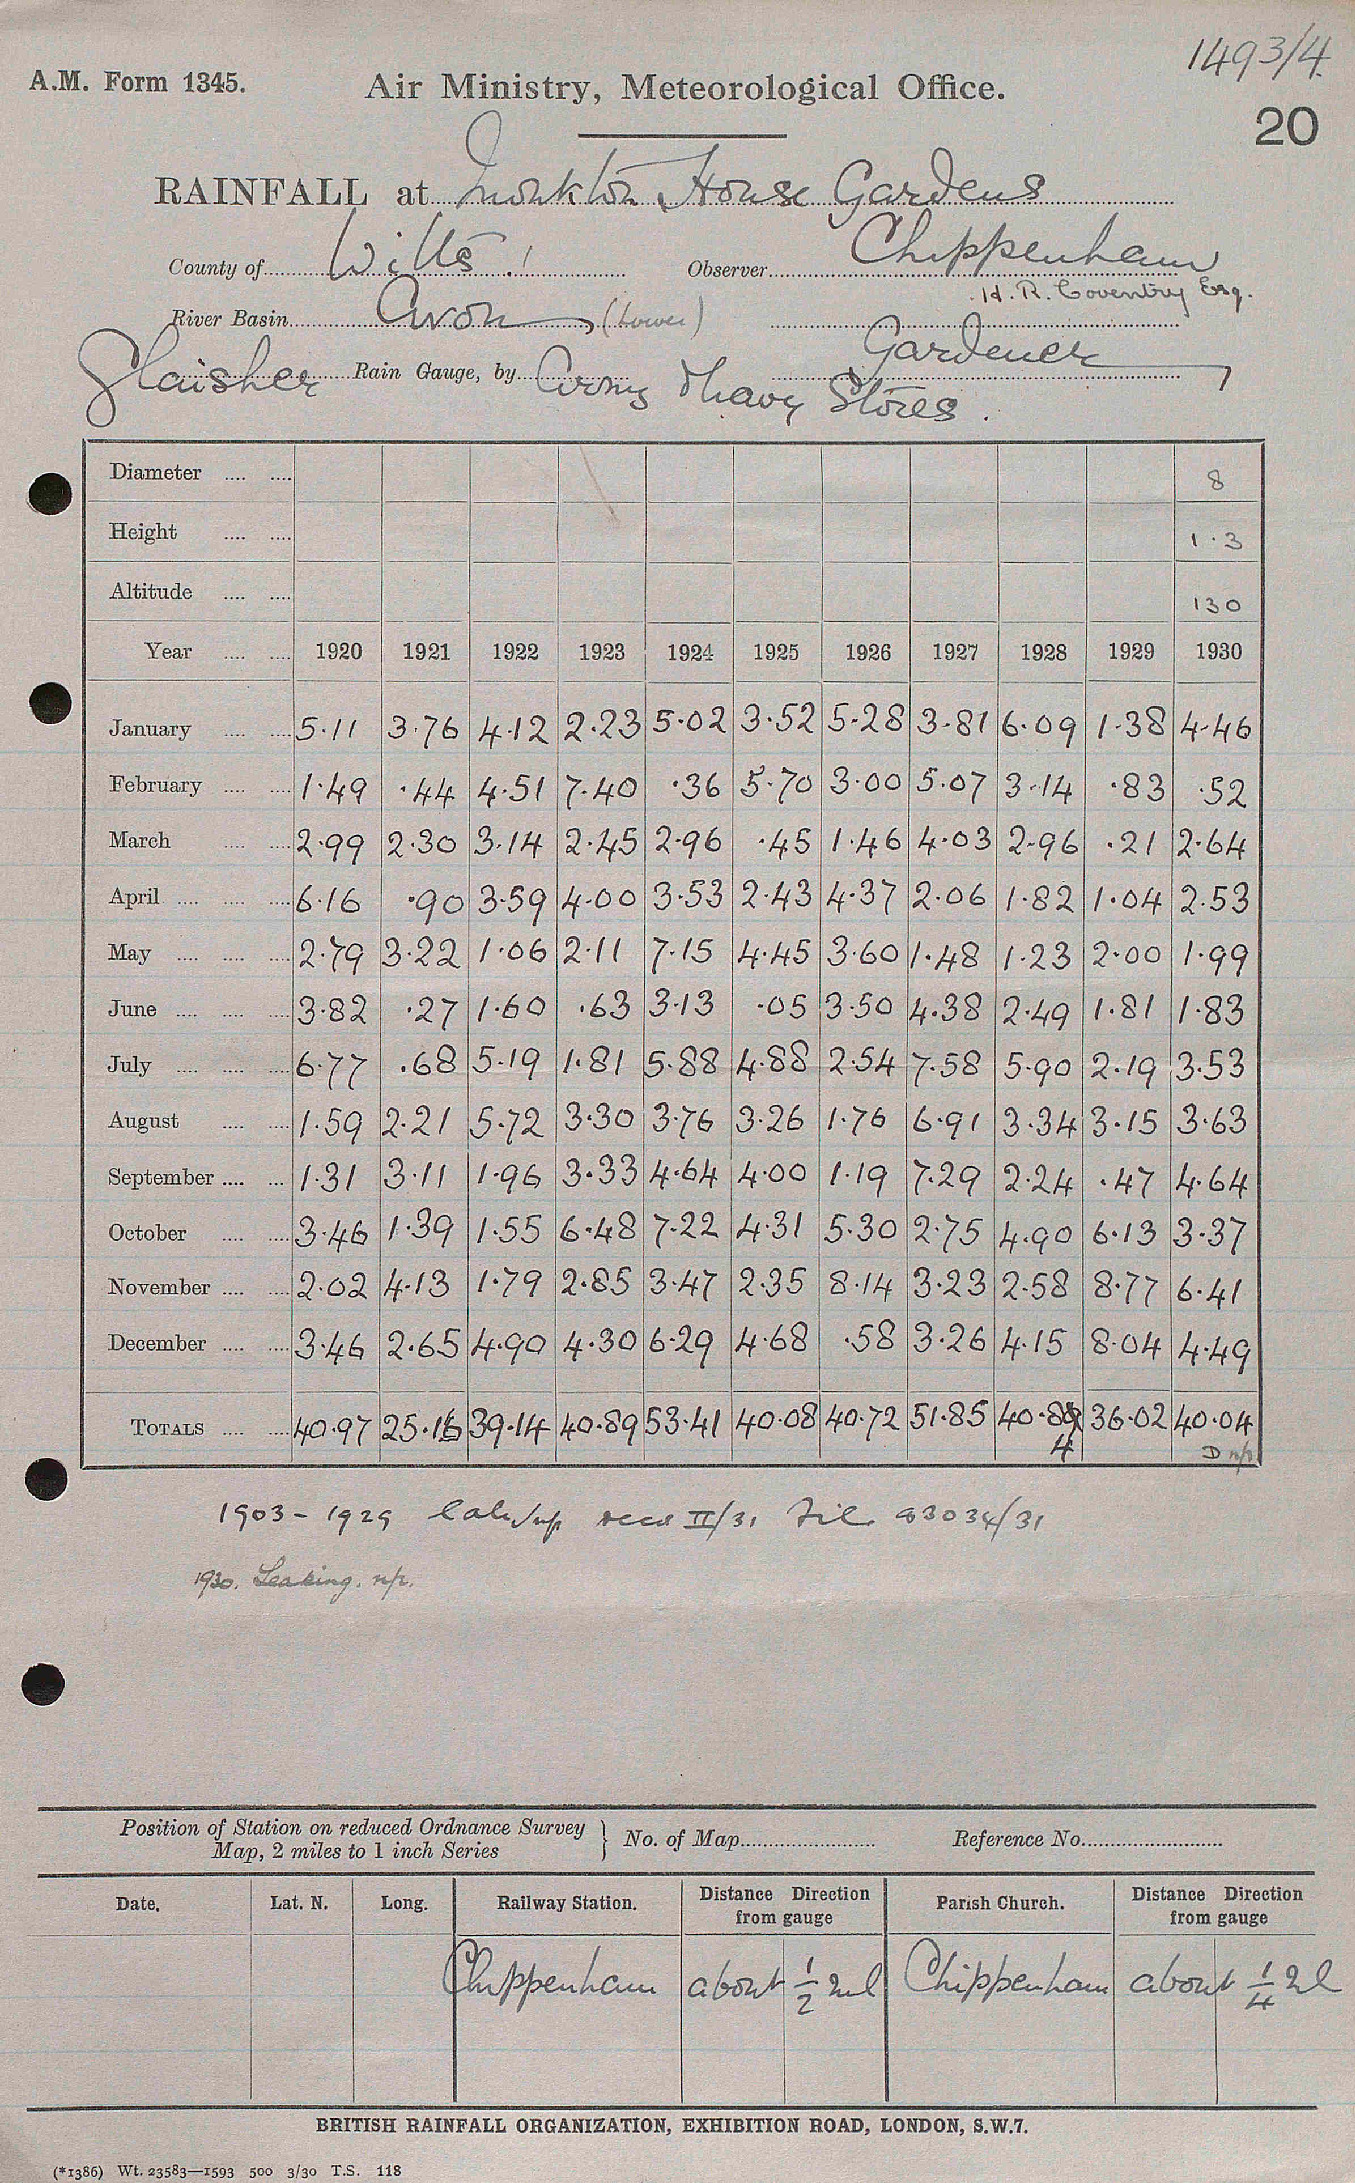 1493/4.
A.M. Form 1345. Air Ministry, Meteorological Office.
20
RAINFALL at Monkton House Gardens
County of Wilts. Observer Chippenham
H. R. Coventry Esq.
River Basin Avon (Lower)
Gardener
Glaisher Rain Gauge, by Army & Navy Stores.
Diameter .... .... 8
Height .... .... 1.3
Altitude .... .... 130
Year .... .... 1920 1921 1922 1923 1924 1925 1926 1927 1928 1929 1930
January .... .... 5.11 3.76 4.12 2.23 5.02 3.52 5.28 3.81 6.09 1.38 4.46
February .... .... 1.49 .44 4.51 7.40 .36 5.70 3.00 5.07 3.14 .83 .52
March .... .... 2.99 2.30 3.14 2.45 2.96 .45 1.46 4.03 2.96 .21 2.64
April .... .... .... 6.16 .90 3.59 4.00 3.53 2.43 4.37 2.06 1.82 1.04 2.53
May .... .... .... 2.79 3.22 1.06 2.11 7.15 4.45 3.60 1.48 1.23 2.00 1.99
June .... .... .... 3.82 .27 1.60 .63 3.13 .05 3.50 4.38 2.49 1.81 1.83
July .... .... .... 6.77 .68 5.19 1.81 5.88 4.88 2.54 7.58 5.90 2.19 3.53
August .... .... 1.59 2.21 5.72 3.30 3.76 3.26 1.76 6.91 3.34 3.15 3.63
September .... .... 1.31 3.11 1.96 3.33 4.64 4.00 1.19 7.29 2.24 .47 4.64
October .... .... 3.46 1.39 1.55 6.48 7.22 4.31 5.30 2.75 4.90 6.13 3.37
November .... .... 2.02 4.13 1.79 2.85 3.47 2.35 8.14 3.23 2.58 8.77 6.41
December .... .... 3.46 2.65 4.90 4.30 6.29 4.68 .58 3.26 4.15 8.04 4.49
TOTALS .... .... 40.97 25.16 39.14 40.89 53.41 40.08 40.72 51.85 40.89 36.02 40.04
4 D n/p
1903 - 1929 recd II/31 File 83034/31
1930. Leaking. n/p.
Position of Station on reduced Ordnance Survey
Map, 2 miles to 1 inch Series } No. of Map Reference No.
Date. Lat. N. Long. Railway Station. Distance Direction from gauge Parish Church. Distance Direction from gauge
Chippenham about 1/2 ml Chippenham about 1/4 ml
BRITISH RAINFALL ORGANIZATION, EXHIBITION ROAD, LONDON, S.W.7.
(*1386) Wt. 23583—1593 500 3/30 T.S. 118